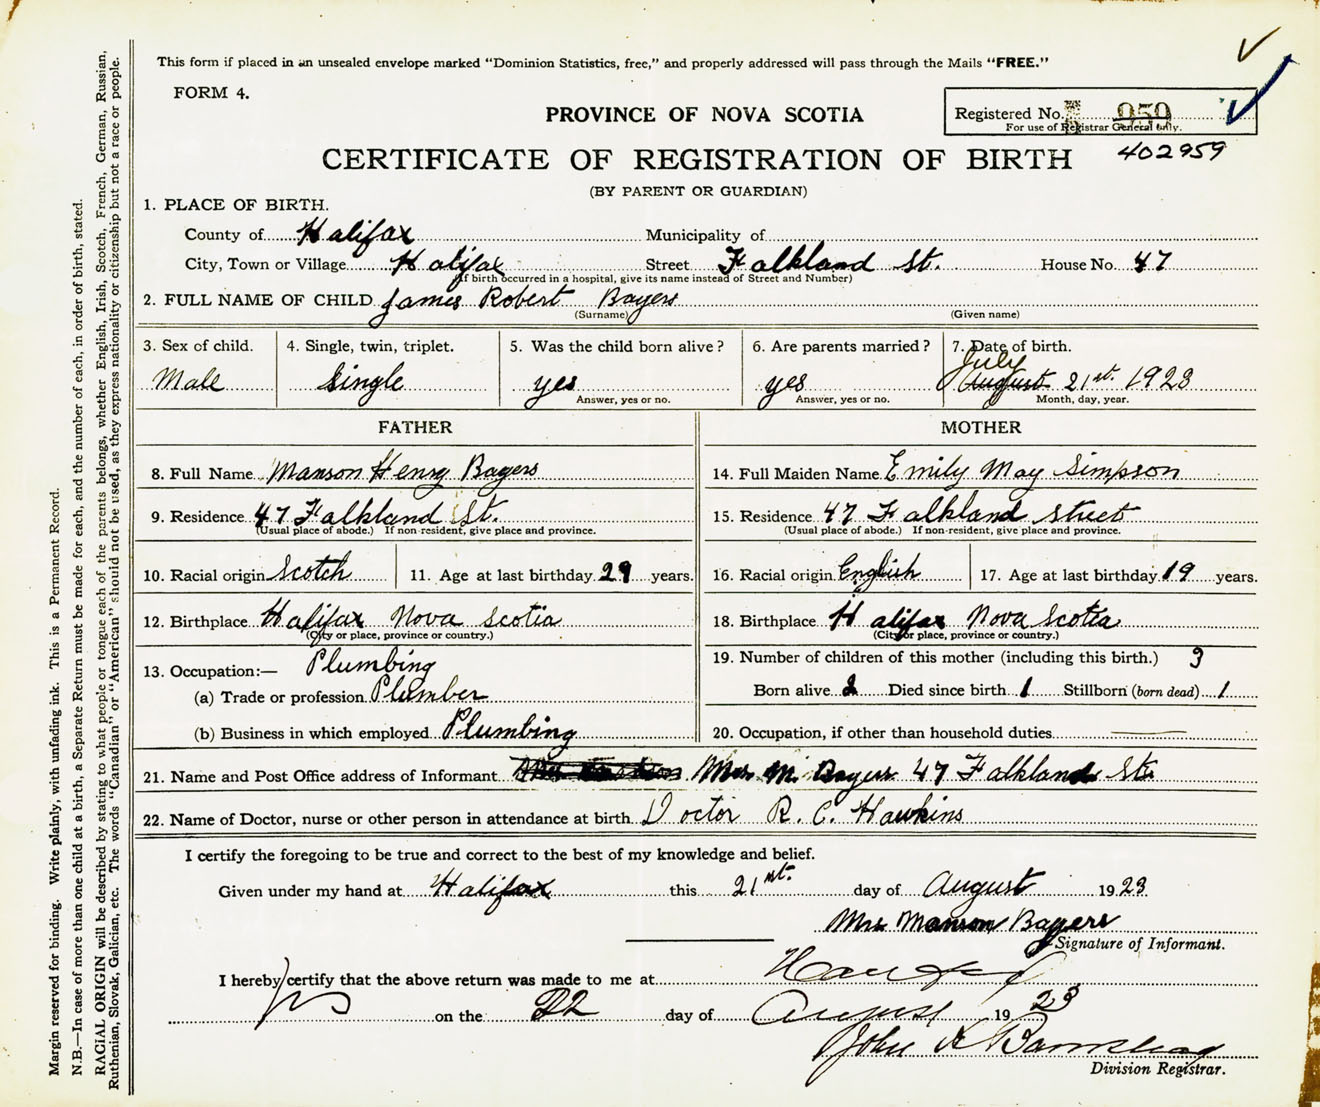 This form if placed in an unsealed envelope marked "Dominion Statistics, free," and properly addressed will pass through the Mails "FREE."
FORM 4.
PROVINCE OF NOVA SCOTIA
Registered No. 959
For use of Registrar General only.
402959
CERTIFICATE OF REGISTRATION OF BIRTH
(BY PARENT OR GUARDIAN)
1. PLACE OF BIRTH.
County of Halifax Municipality of
City, Town or Village Halifax Street Falkland St. House No. 47
(If birth occurred in a hospital, give its name instead of Street and Number)
2. FULL NAME OF CHILD James Robert Bayers
(Surname) (Given name)
3. Sex of child. 4. Single, twin, triplet. 5. Was the child born alive? 6. Are parents married? 7. Date of birth.
July
Male Single yes yes August 21st. 1923
Answer, yes or no. Answer, yes or no. Month, day, year.
FATHER MOTHER
8. Full Name Manson Henry Bayers 14. Full Maiden Name Emily May Simpson
9. Residence 47 Falkland St. 15. Residence 47 Falkland Street
(Usual place of abode.) If non-resident, give place and province. (Usual place of abode.) If non-resident, give place and province.
10. Racial origin Scotch 11. Age at last birthday 29 years. 16. Racial origin English 17. Age at last birthday 19 years.
12. Birthplace Halifax Nova Scotia 18. Birthplace Halifax Nova Scotia
(City or place, province or country.) (City or place, province or country.)
13. Occupation:— Plumbing 19. Number of children of this mother (including this birth.) 3
(a) Trade or profession Plumber Born alive 2 Died since birth 1 Stillborn (born dead) 1
(b) Business in which employed Plumbing 20. Occupation, if other than household duties
21. Name and Post Office address of Informant Mrs M. Bayers 47 Falkland St.
22. Name of Doctor, nurse or other person in attendance at birth Doctor R. C. Hawkins
I certify the foregoing to be true and correct to the best of my knowledge and belief.
Given under my hand at Halifax this 21st. day of August 1923
Mrs Manson Bayers
Signature of Informant.
I hereby certify that the above return was made to me at Halifax
NS on the 22 day of August 1923
John A
Division Registrar.
Margin reserved for binding. Write plainly, with unfading ink. This is a Permanent Record.
N.B.—In case of more than one child at a birth, a Separate Return must be made for each, and the number of each, in order of birth, stated.
RACIAL ORIGIN will be described by stating to what people or tongue each of the parents belongs, whether English, Irish, Scotch, French, German, Russian,
Ruthenian, Slovak, Galician, etc. The words "Canadian" or "American" should not be used, as they express nationality or citizenship but not a race or people.